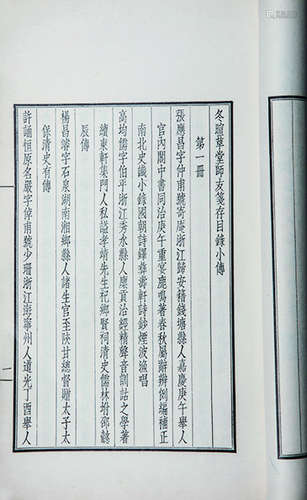 冬暄草堂師友箋存目錄小傳
第一冊
張應昌字仲甫號寄庵浙江歸安籍錢塘縣人嘉慶庚午舉人
官內閣中書同治庚午重宴鹿鳴著春秋屬辭辨例編補正
南北史識小錄國朝詩鐸彝壽軒詩鈔煙波漁唱
高均儒字伯平浙江秀水縣人廩貢治經精聲音訓詁之學著
續東軒集門人私謚孝靖先生祀鄉賢祠清史儒林坿邵懿
辰傳
楊昌濬字石泉湖南湘鄉縣人諸生官至陝甘總督贈太子太
保清史有傳
許誦恒原名嚴字倬甫號少珊浙江海寧州人道光丁酉舉人
一